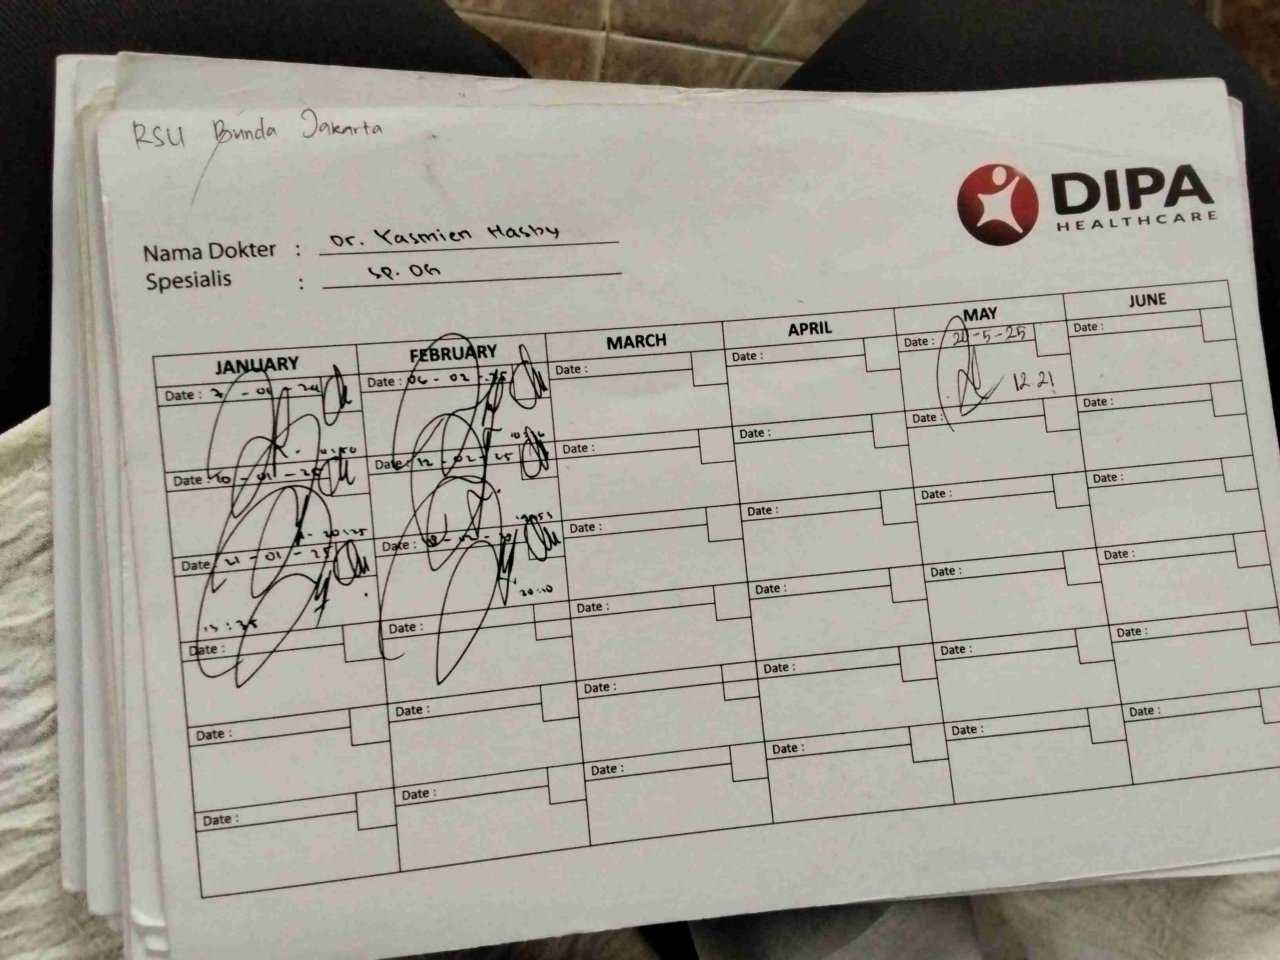 RSU Bunda Jakarta
DIPA
HEALTHCARE
Nama Dokter : Dr. Yasmien Hasby
Spesialis : SP. OG
JANUARY FEBRUARY MARCH APRIL MAY JUNE
Date : 7 - 01 - Date : 06 - 02 - 25 Date : Date : Date : 20-5-25 Date :
12.21
Date : 10 - 01 - 25 Date : 12 - 02 - 25 Date : Date : Date : Date :
20:25
Date : 21 - 01 - 25 Date : Date : Date : Date : Date :
20:10
Date : Date : Date : Date : Date : Date :
Date : Date : Date : Date : Date : Date :
Date : Date : Date : Date : Date : Date :